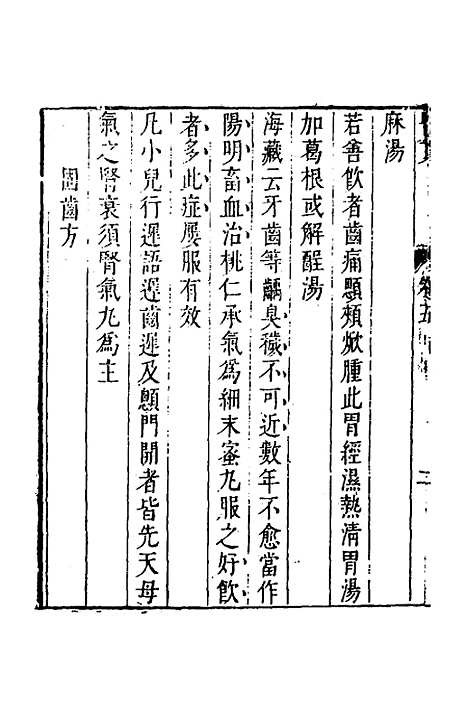 麻湯
若善飲者齒痛顋頰焮腫此胃經濕熱清胃湯
加葛根或解酲湯
海藏云牙齒等齲臭穢不可近數年不愈當作
陽明畜血治桃仁承氣爲細末蜜丸服之好飲
者多此症屢服有效
凡小兒行遲語遲齒遲及顖門開者皆先天母
氣之腎衰須腎氣丸爲主
固齒方